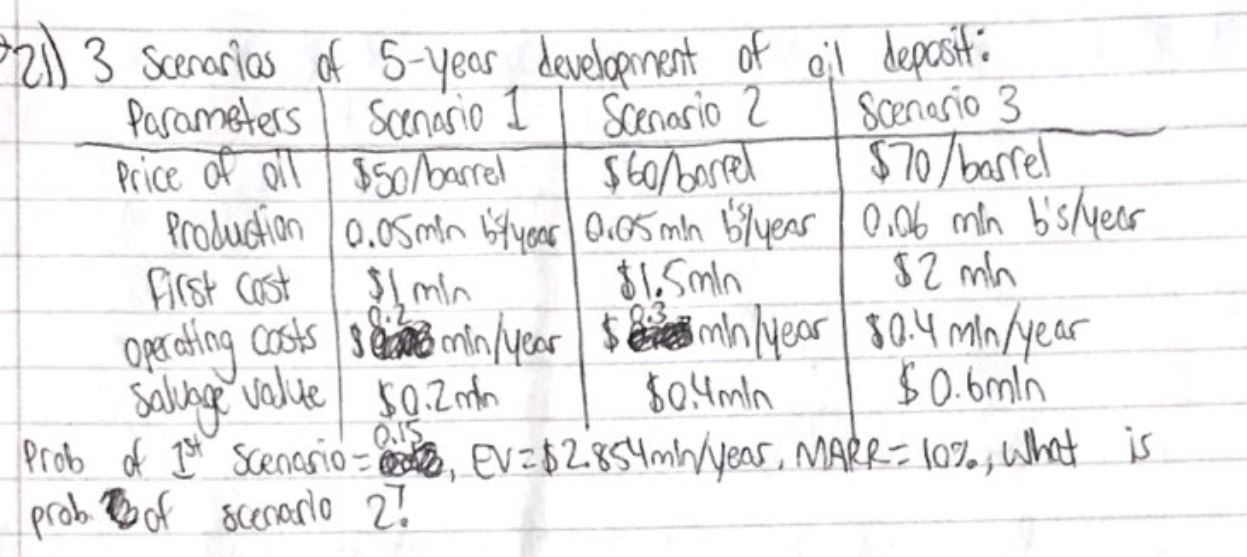 21) 3 Scenarios of 5-year development of oil deposit:
Parameters Scenario 1 Scenario 2 Scenario 3
Price of oil $50/barrel $60/barrel $70/barrel
Production 0.05mln b's/year 0.05mln b's/year 0.06 mln b's/year
First cost $1 mln $1.5mln $2 mln
operating costs $0.2 mln/year $0.3 mln/year $0.4 mln/year
Salvage value $0.2mln $0.4mln $0.6mln
Prob of 1st Scenario = 0.15, EV=$2.854mln/year, MARR=10%, What is
prob. of scenario 2?